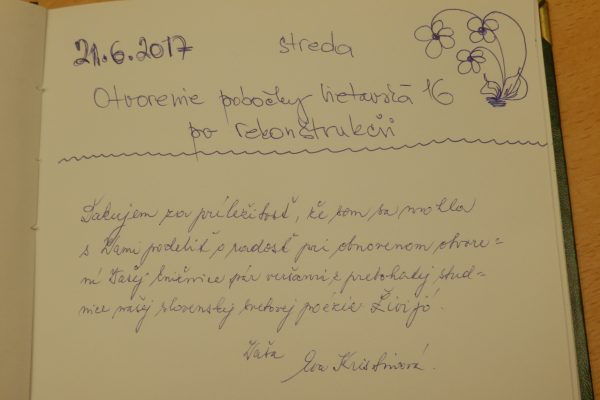 21.6.2017 streda
Otvorenie pobočky Lietavská 16
po rekonštrukcii
Ďakujem za príležitosť, že som sa mohla
s Vami podeliť o radosť pri obnovenom otvore=
ní Vašej knižnice pár veršami z prebohatej stud=
nice našej slovenskej svetovej poézie Živijó!
Vaša
Eva Kristinová.